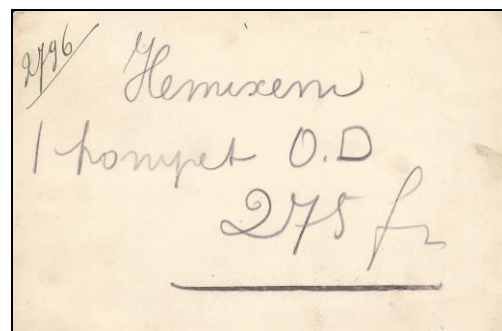 2796
Hemixem
1 pompet O.D
275 fr